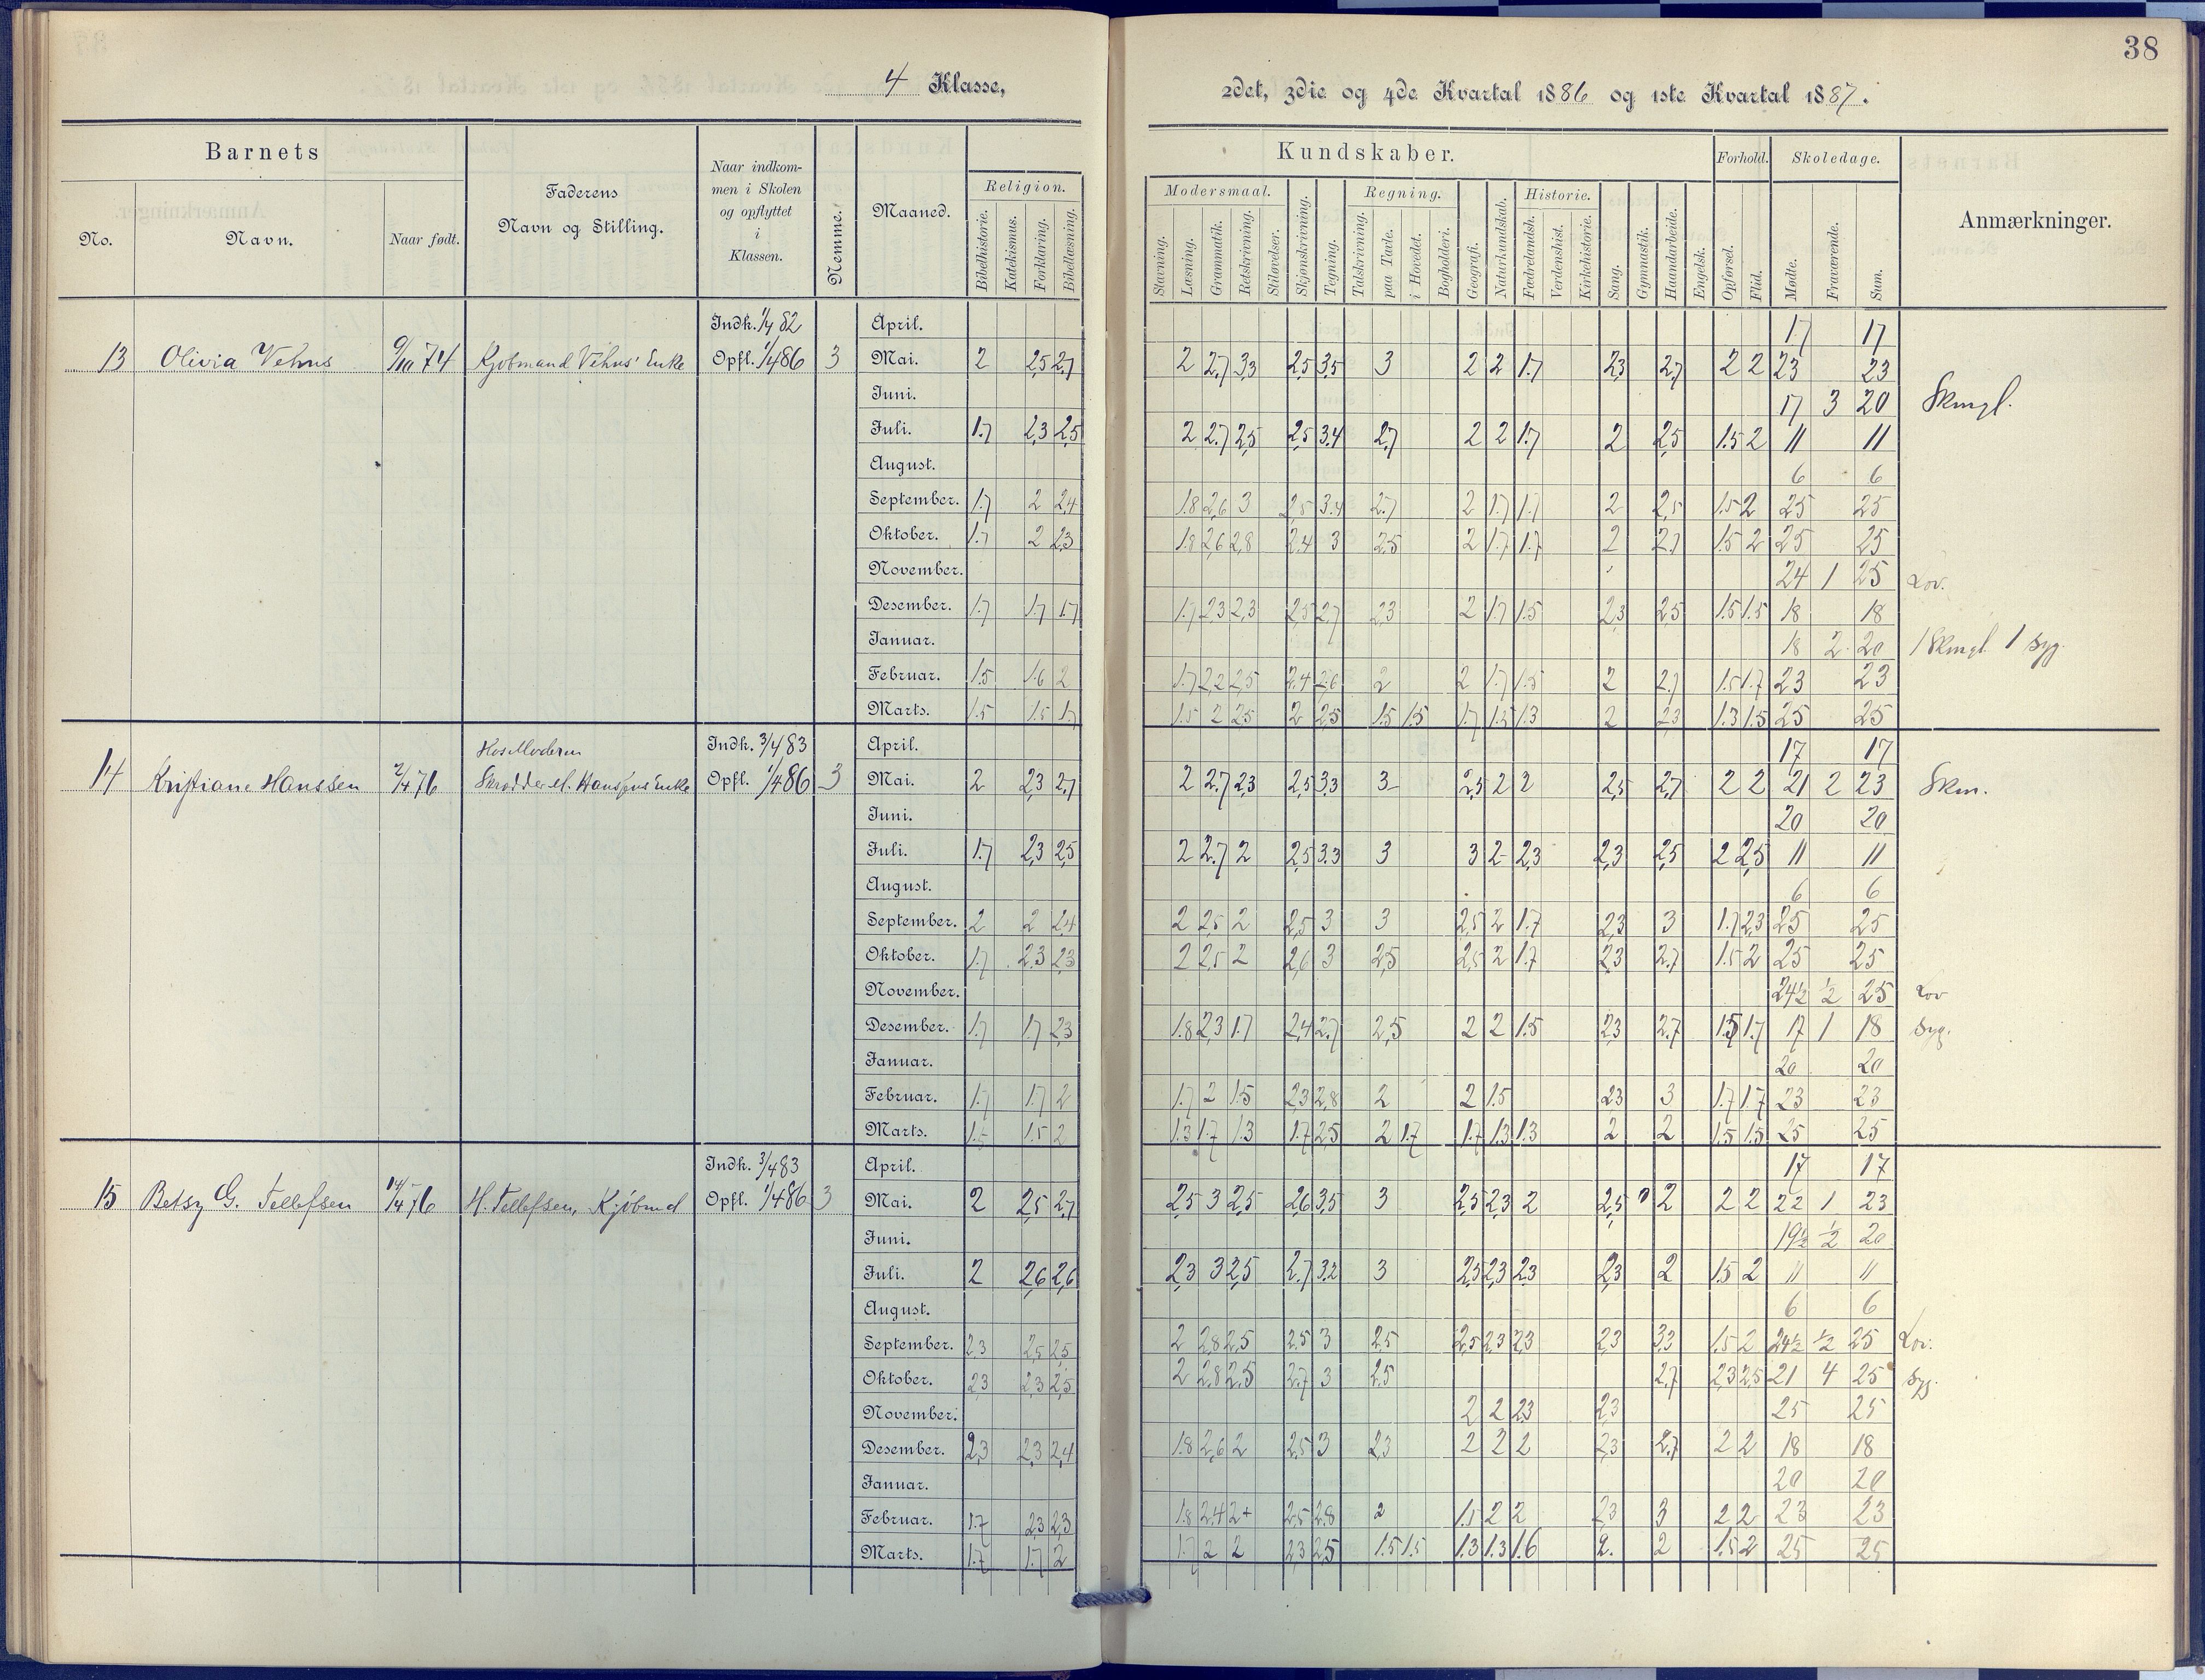 38
4 Klasse,
2det, 3die og 4de Kvartal 1886 og 1ste Kvartal 1887.
Barnets
No.
Navn.
Naar født.
Faderens
Navn og Stilling.
Naar indkom-
men i Skolen
og opflyttet
i
Klassen.
Nemme.
Maaned.
Religion.
Bibelhistorie.
Katekismus.
Forklaring.
Bibellæsning.
Kundskaber.
Modersmaal.
Stavning.
Læsning.
Grammatik.
Retskrivning.
Stiløvelser.
Skjønskrivning.
Tegning.
Regning.
Talskrivning.
paa Tavle.
i Hovedet.
Bogholderi.
Geografi.
Naturkundskab.
Historie.
Fædrelandsh.
Verdenshist.
Kirkehistorie.
Sang.
Gymnastik.
Haandarbeide.
Engelsk.
Forhold.
Opførsel.
Flid.
Skoledage.
Mødte.
Fraværende.
Sum.
Anmærkninger.
Indk. 1/4 82 April. 17 17
13 Olivia Vehus 9/10 74 Kjøbmand Vehus' Enke Opfl. 1/4 86 3 Mai. 2 2,5 2,7 2 2,7 3,3 2,5 3,5 3 2 2 1.7 2,3 2,7 2 2 23 23
Juni. 17 3 20 Skmgl.
Juli. 1.7 2,3 2,5 2 2.7 2,5 2,5 3.4 2,7 2 2 1.7 2 2,5 1.5 2 11 11
August. 6 6
September. 1.7 2 2,4 1.8 2,6 3 2,5 3.4 2.7 2 1.7 1.7 2 2,5 1.5 2 25 25
Oktober. 1.7 2 2,3 1.8 2,6 2,8 2,4 3 2,5 2 1.7 1.7 2 2,7 1.5 2 25 25
November. 24 1 25 Lov.
Desember. 1.7 1.7 1.7 1.7 2,3 2,3 2,5 2,7 2,3 2 1.7 1.5 2,3 2,5 1.5 1.5 18 18
Januar. 18 2 20 1 Skmgl 1 Syg.
Februar. 1.5 1.6 2 1.7 2,2 2,5 2.4 2,6 2 2 1.7 1.5 2 2,7 1.5 1.7 23 23
Marts. 1.5 1.5 1.7 1.5 2 2,5 2 2,5 1.5 1.5 1.7 1.5 1.3 2 2,3 1.3 1.5 25 25
Hos Moderen Indk. 3/4 83 April. 17 17
14 Kristiane Hanssen 2/4 76 Opfl. 1/4 86 3 Mai. 2 2,3 2,7 2 2.7 2,3 2,5 3,3 3 2,5 2 2 2,5 2,7 2 2 21 2 23 Skm.
Juni. 20 20
Juli. 1.7 2,3 2,5 2 2.7 2 2,5 3.3 3 3 2 2,3 2,3 2,5 2 2,5 11 11
August. 6 6
September. 2 2 2,4 2 2,5 2 2,5 3 3 2,5 2 1.7 2,3 3 1.7 2,3 25 25
Oktober. 1.7 2.3 2,3 2 2,5 2 2,6 3 2,5 2,5 2 1.7 2,3 2.7 1.5 2 25 25
November. 24½ ½ 25 Lov
Desember. 1.7 1.7 2,3 1.8 2,3 1.7 2,4 2.7 2,5 2 2 1.5 2,3 2.7 1.5 1.7 17 1 18 Syg.
Januar. 20 20
Februar. 1.7 1.7 2 1.7 2 1.5 2,3 2,8 2 2 1.5 2,3 3 1.7 1.7 23 23
Marts. 1.5 1.5 2 1.3 1.7 1.3 1.7 2,5 2 1.7 1.7 1.3 1.3 2 2 1.5 1.5 25 25
Indk. 3/4 83 April. 17 17
15 Betsy G. Tellefsen 14/4 76 H. Tellefsen, Kjøbmd Opfl. 1/4 86 3 Mai. 2 2,5 2,7 2,5 3 2,5 2,6 3,5 3 2,5 2,3 2 2,5 0 2 2 2 22 1 23
Juni. 19½ ½ 20
Juli. 2 2,6 2,6 2,3 3 2,5 2.7 3,2 3 2,3 2,3 2,3 2,3 2 1.5 2 11 11
August. 6 6
September. 2,3 2,5 2,5 2 2,8 2,5 2.5 3 2,5 2,5 2,3 2,3 2,3 3,3 1.5 2 24½ ½ 25 Lov.
Oktober. 2,3 2,3 2,5 2 2,8 2,5 2.7 3 2,5 2,7 2,3 2,5 21 4 25 Syg.
November. 2 2 2,3 2,3 25 25
Desember. 2,3 2,3 2,4 1.8 2,6 2 2.5 3 2,3 2 2 2 2,3 2,7 2 2 18 18
Januar. 20 20
Februar. 1.7 2,3 2,3 1.8 2,4 2+ 2,5 2.8 2 1.5 2 2 2,3 3 2 2 23 23
Marts. 1.7 1.7 2 1.7 2 2 2,3 2,5 1.5 1.5 1.3 1.3 1.6 2. 2 1.5 2 25 25